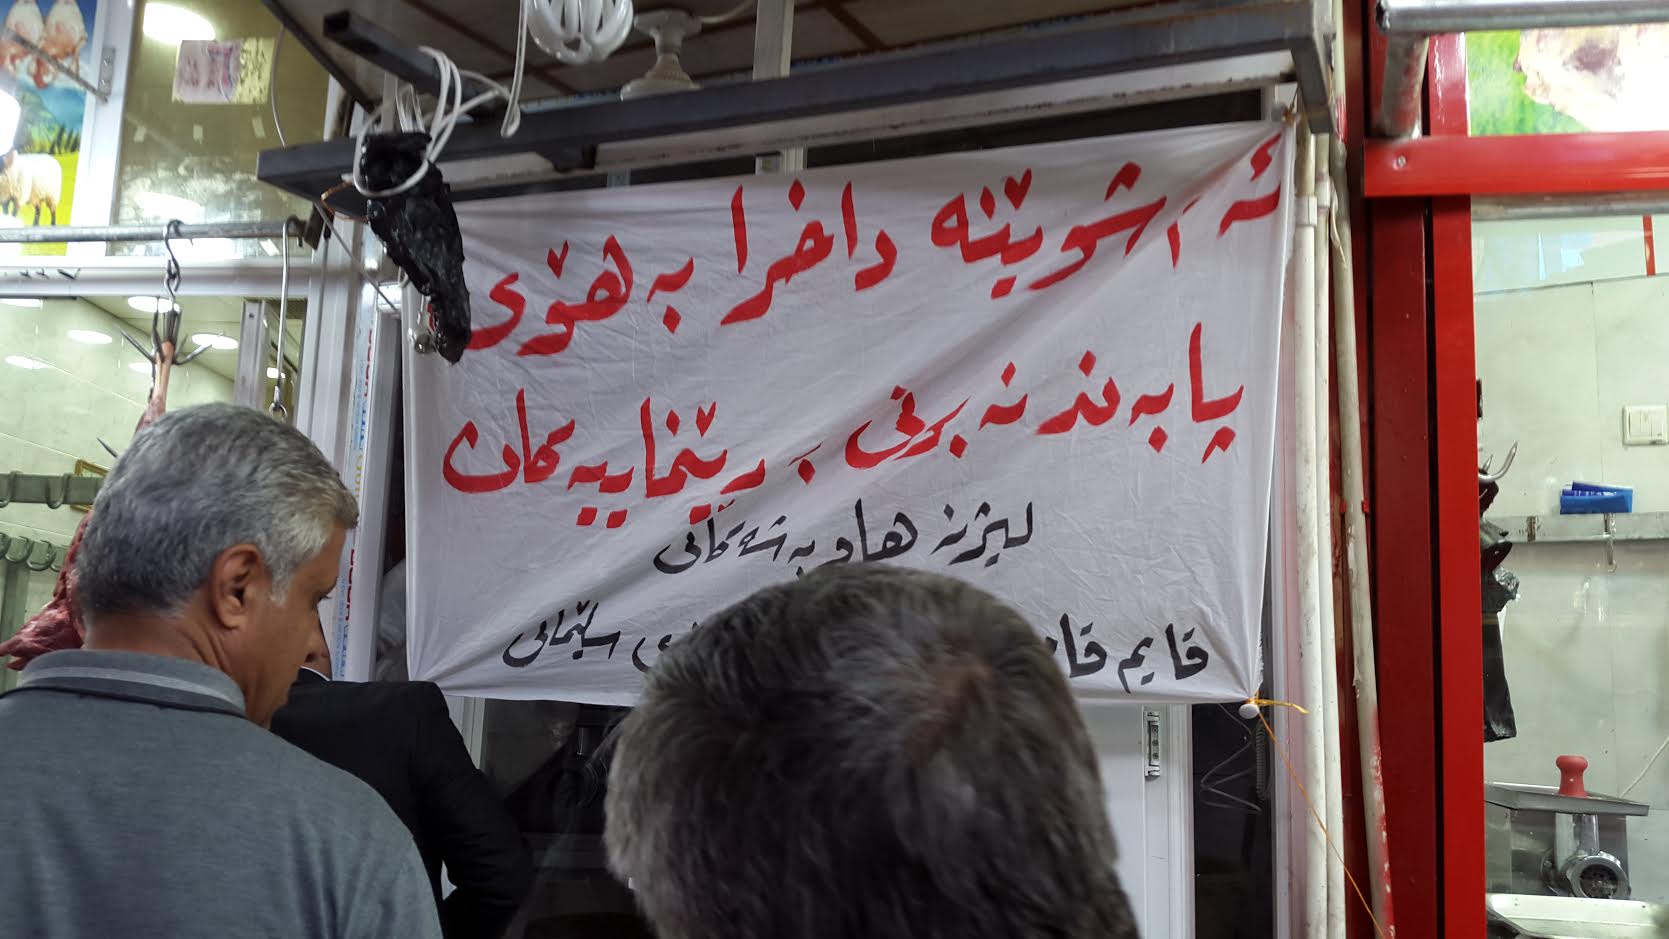 ئەم شوێنە داخرا بەهۆی
پابەندنەبونی بە رێنماییەکان
لیژنە هاوبەشەکانی
قایم قا ی سلێمانی